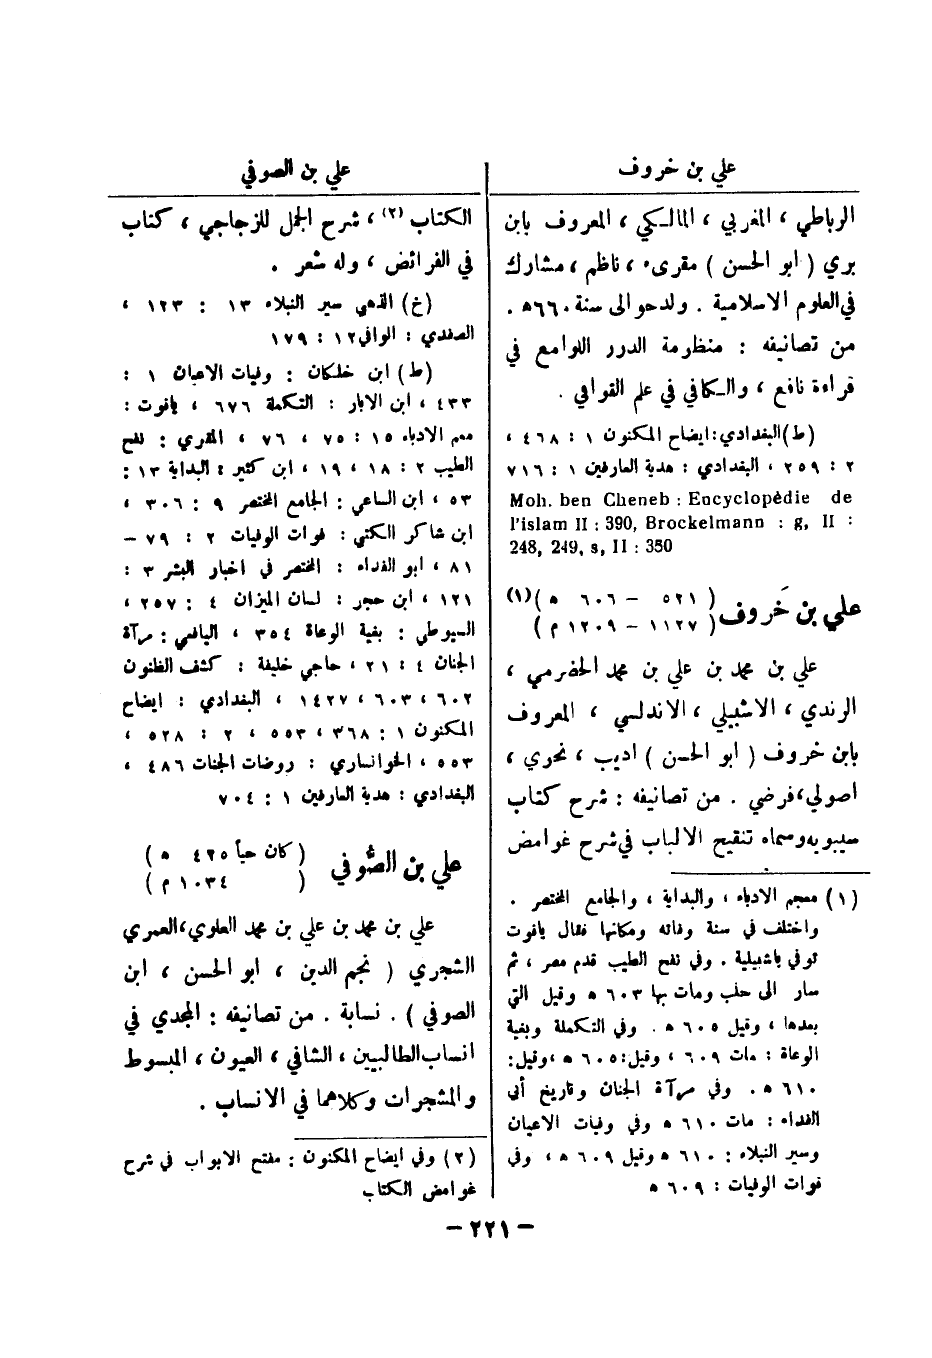 علي بن خروف
الرباطي ، المغربي ، المالكي ، المعروف بابن
بري ( ابو الحسن ) مقرىء ، ناظم ، مشارك
في العلوم الاسلامية . ولد حوالى سنة ٦٦٠ ه .
من تصانيفه : منظومة الدرر اللوامع في
قراءة نافع ، والكافي في علم القوافي .
(ط) البغدادي : ايضاح المكنون ١ : ٤٦٨ ،
٢ : ٢٥٩ ، البغدادي : هدية العارفين ١ : ٧١٦
Moh. ben Cheneb : Encyclopédie de
l'islam II : 390, Brockelmann : g, II :
248, 249, s, II : 350
علي بن خَروف ( ٥٢١ – ٦٠٦ ه )(١)
( ١١٢٧ – ١٢٠٩ م )
علي بن محمد بن علي بن محمد الحضرمي ،
الرندي ، الاشبيلي ، الاندلسي ، المعروف
بابن خروف ( ابو الحسن ) اديب ، نحوي ،
اصولي ، فرضي . من تصانيفه : شرح كتاب
سيبويه وسماه تنقيح الالباب في شرح غوامض
(١) معجم الادباء ، والبداية ، والجامع المختصر .
واختلف في سنة وفاته ومكانها فقال ياقوت
توفي باشبيلية . وفي نفح الطيب قدم مصر ، ثم
سار الى حلب ومات بها ٦٠٣ ه وقيل التي
بعدها ، وقيل ٦٠٥ ه . وفي التكملة وبغية
الوعاة : مات ٦٠٩ ، وقيل : ٦٠٥ ه ، وقيل :
٦١٠ ه . وفي مرآة الجنان وتاريخ أبي
الفداء : مات ٦١٠ ه وفي وفيات الاعيان
وسير النبلاء : ٦١٠ ه وقيل ٦٠٩ ه ، وفي
فوات الوفيات : ٦٠٩ ه
علي بن الصوفي
الكتاب (٢) ، شرح الجمل للزجاجي ، كتاب
في الفرائض ، وله شعر .
(خ) الذهبي سير النبلاء ١٣ : ١٢٣ ،
الصفدي : الوافي ١٢ : ١٧٩
(ط) ابن خلكان : وفيات الاعيان ١ :
٤٣٣ ، ابن الابار : التكملة ٦٧٦ ، ياقوت :
معجم الادباء ١٥ : ٧٥ ، ٧٦ ، المقري : نفح
الطيب ٢ : ١٨ ، ١٩ ، ابن كثير : البداية ١٣ :
٥٣ ، ابن الساعي : الجامع المختصر ٩ : ٣٠٦ ،
ابن شاكر الكتبي : فوات الوفيات ٢ : ٧٩ –
٨١ ، ابو الفداء : المختصر في اخبار البشر ٣ :
١٢١ ، ابن حجر : لسان الميزان ٤ : ٢٥٧ ،
السيوطي : بغية الوعاة ٣٥٤ ، اليافعي : مرآة
الجنان ٤ : ٢١ ، حاجي خليفة : كشف الظنون
٦٠٢ ، ٦٠٣ ، ١٤٢٧ ، البغدادي : ايضاح
المكنون ١ : ٣٦٨ ، ٥٥٣ ، ٢ : ٥٢٨ ،
٥٥٣ ، الخوانساري : روضات الجنات ٤٨٦ ،
البغدادي : هدية العارفين ١ : ٧٠٤
علي بن الصُّوفي ( كان حياً ٤٢٥ ه )
( ١٠٣٤ م )
علي بن محمد بن علي بن محمد العلوي ، العمري
الشجري ( نجم الدين ، ابو الحسن ، ابن
الصوفي ) . نسابة . من تصانيفه : المجدي في
انساب الطالبيين ، الشافي ، العيون ، المبسوط
والمشجرات وكلاهما في الانساب .
(٢) وفي ايضاح المكنون : مفتح الابواب في شرح
غوامض الكتاب
– ٢٢١ –